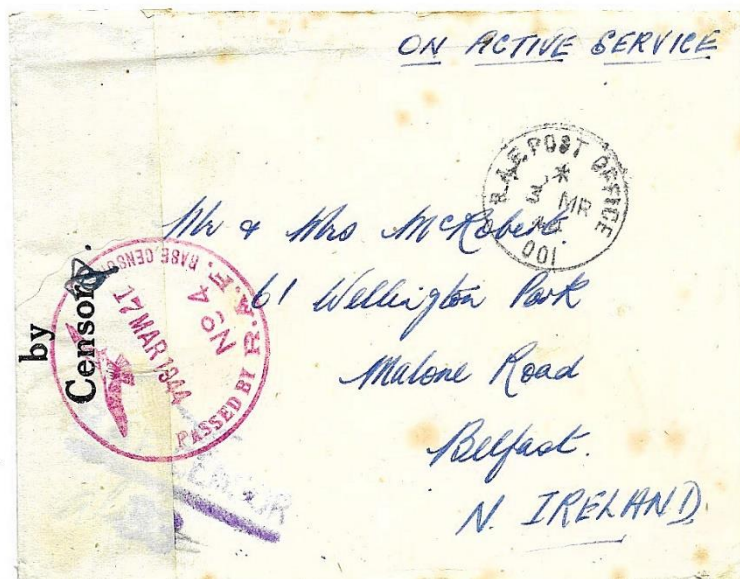 ON ACTIVE SERVICE
R.A.F. POST OFFICE
MR
001
Mr & Mrs McRobert.
61 Wellington Park
Malone Road
Belfast.
N. IRELAND.
by
Censor.
PASSED BY R.A.F. BASE CENSOR
No 4
17 MAR 1944